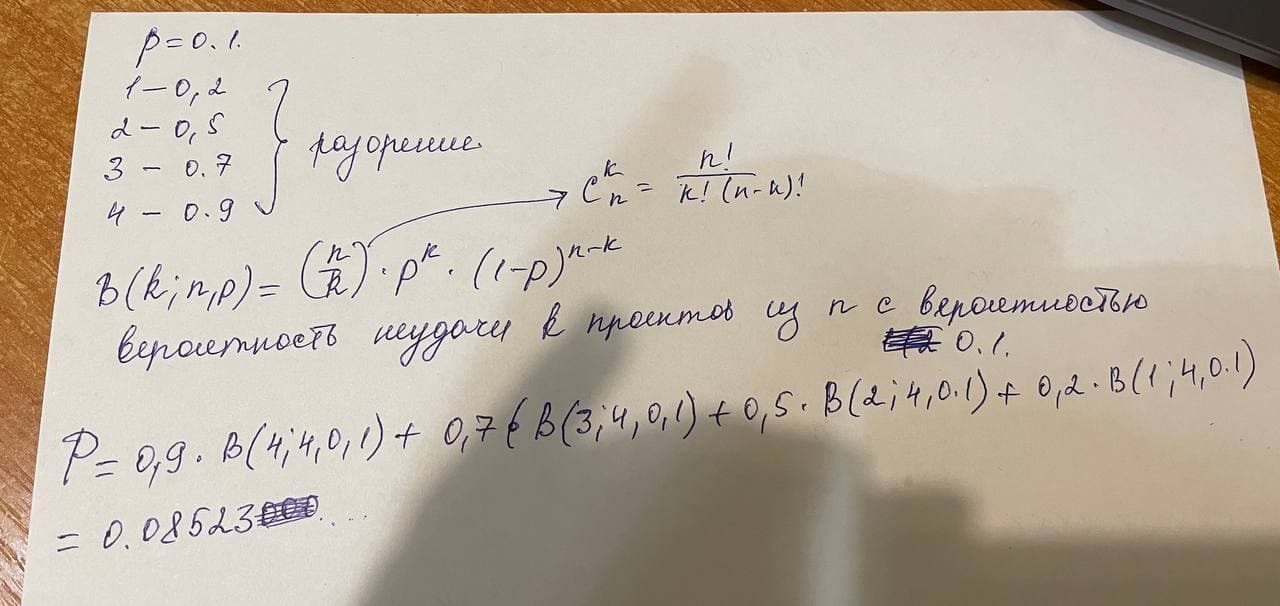 p = 0.1.
1 – 0,2
2 – 0,5
3 – 0.7
4 – 0.9
разорение
C_n^k = n! / k! (n-k)!
B(k; n, p) = (n/k) · p^k · (1-p)^{n-k}
вероятность неудачи k проектов из n с вероятностью
0.1.
P = 0,9 · B(4; 4, 0,1) + 0,7 · B(3; 4, 0,1) + 0,5 · B(2; 4, 0.1) + 0,2 · B(1; 4, 0.1)
= 0.08523....